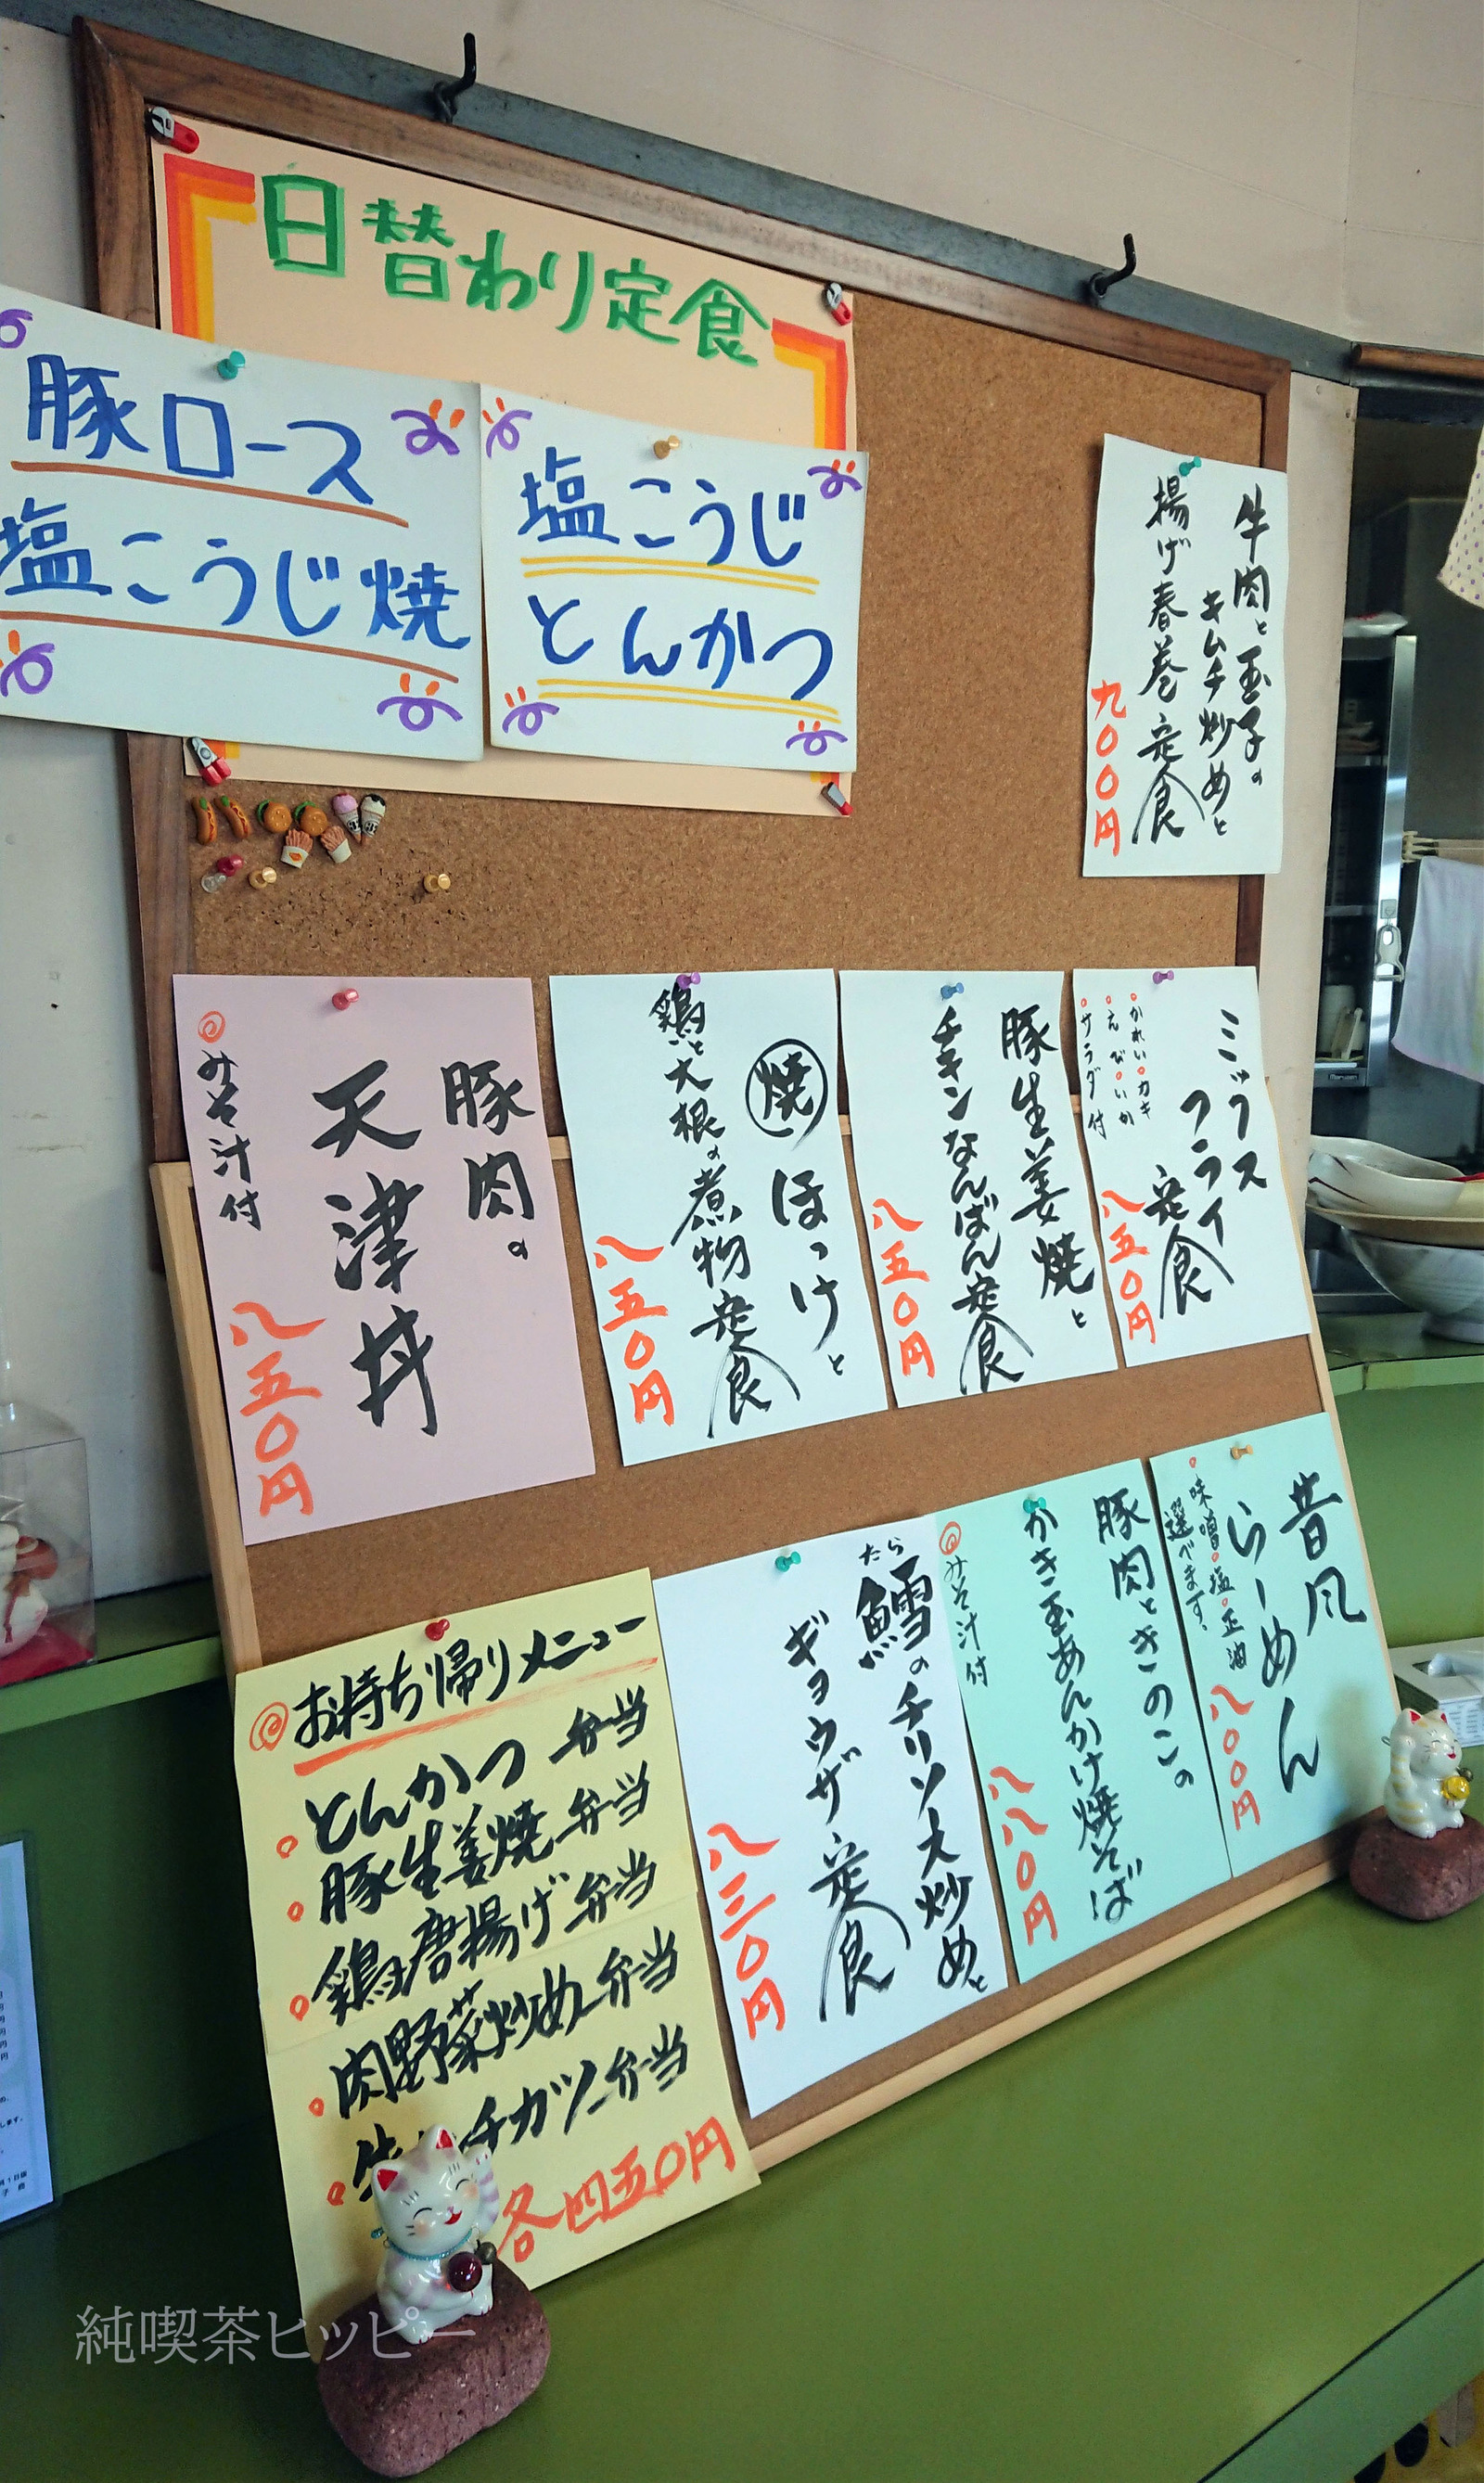 日替わり定食
豚ロース
塩こうじ焼
塩こうじ
とんかつ
牛肉と玉子の
キムチ炒めと
揚げ春巻定食
九〇〇円
ミックス
フライ
定食
かれい カキ
えび いか
サラダ付
八五〇円
豚生姜焼と
チキンなんばん定食
八五〇円
焼ほっけと
鶏と大根の煮物定食
八五〇円
豚肉の
天津丼
みそ汁付
八五〇円
昔風
らーめん
味噌 塩 正油
選べます。
八〇〇円
豚肉ときのこの
かき玉あんかけ焼そば
みそ汁付
八八〇円
たら
鱈のチリソース炒めと
ギョウザ定食
八三〇円
お持ち帰りメニュー
とんかつ弁当
豚生姜焼弁当
鶏唐揚げ弁当
肉野菜炒め弁当
チカツ弁当
各四五〇円
純喫茶ヒッピー